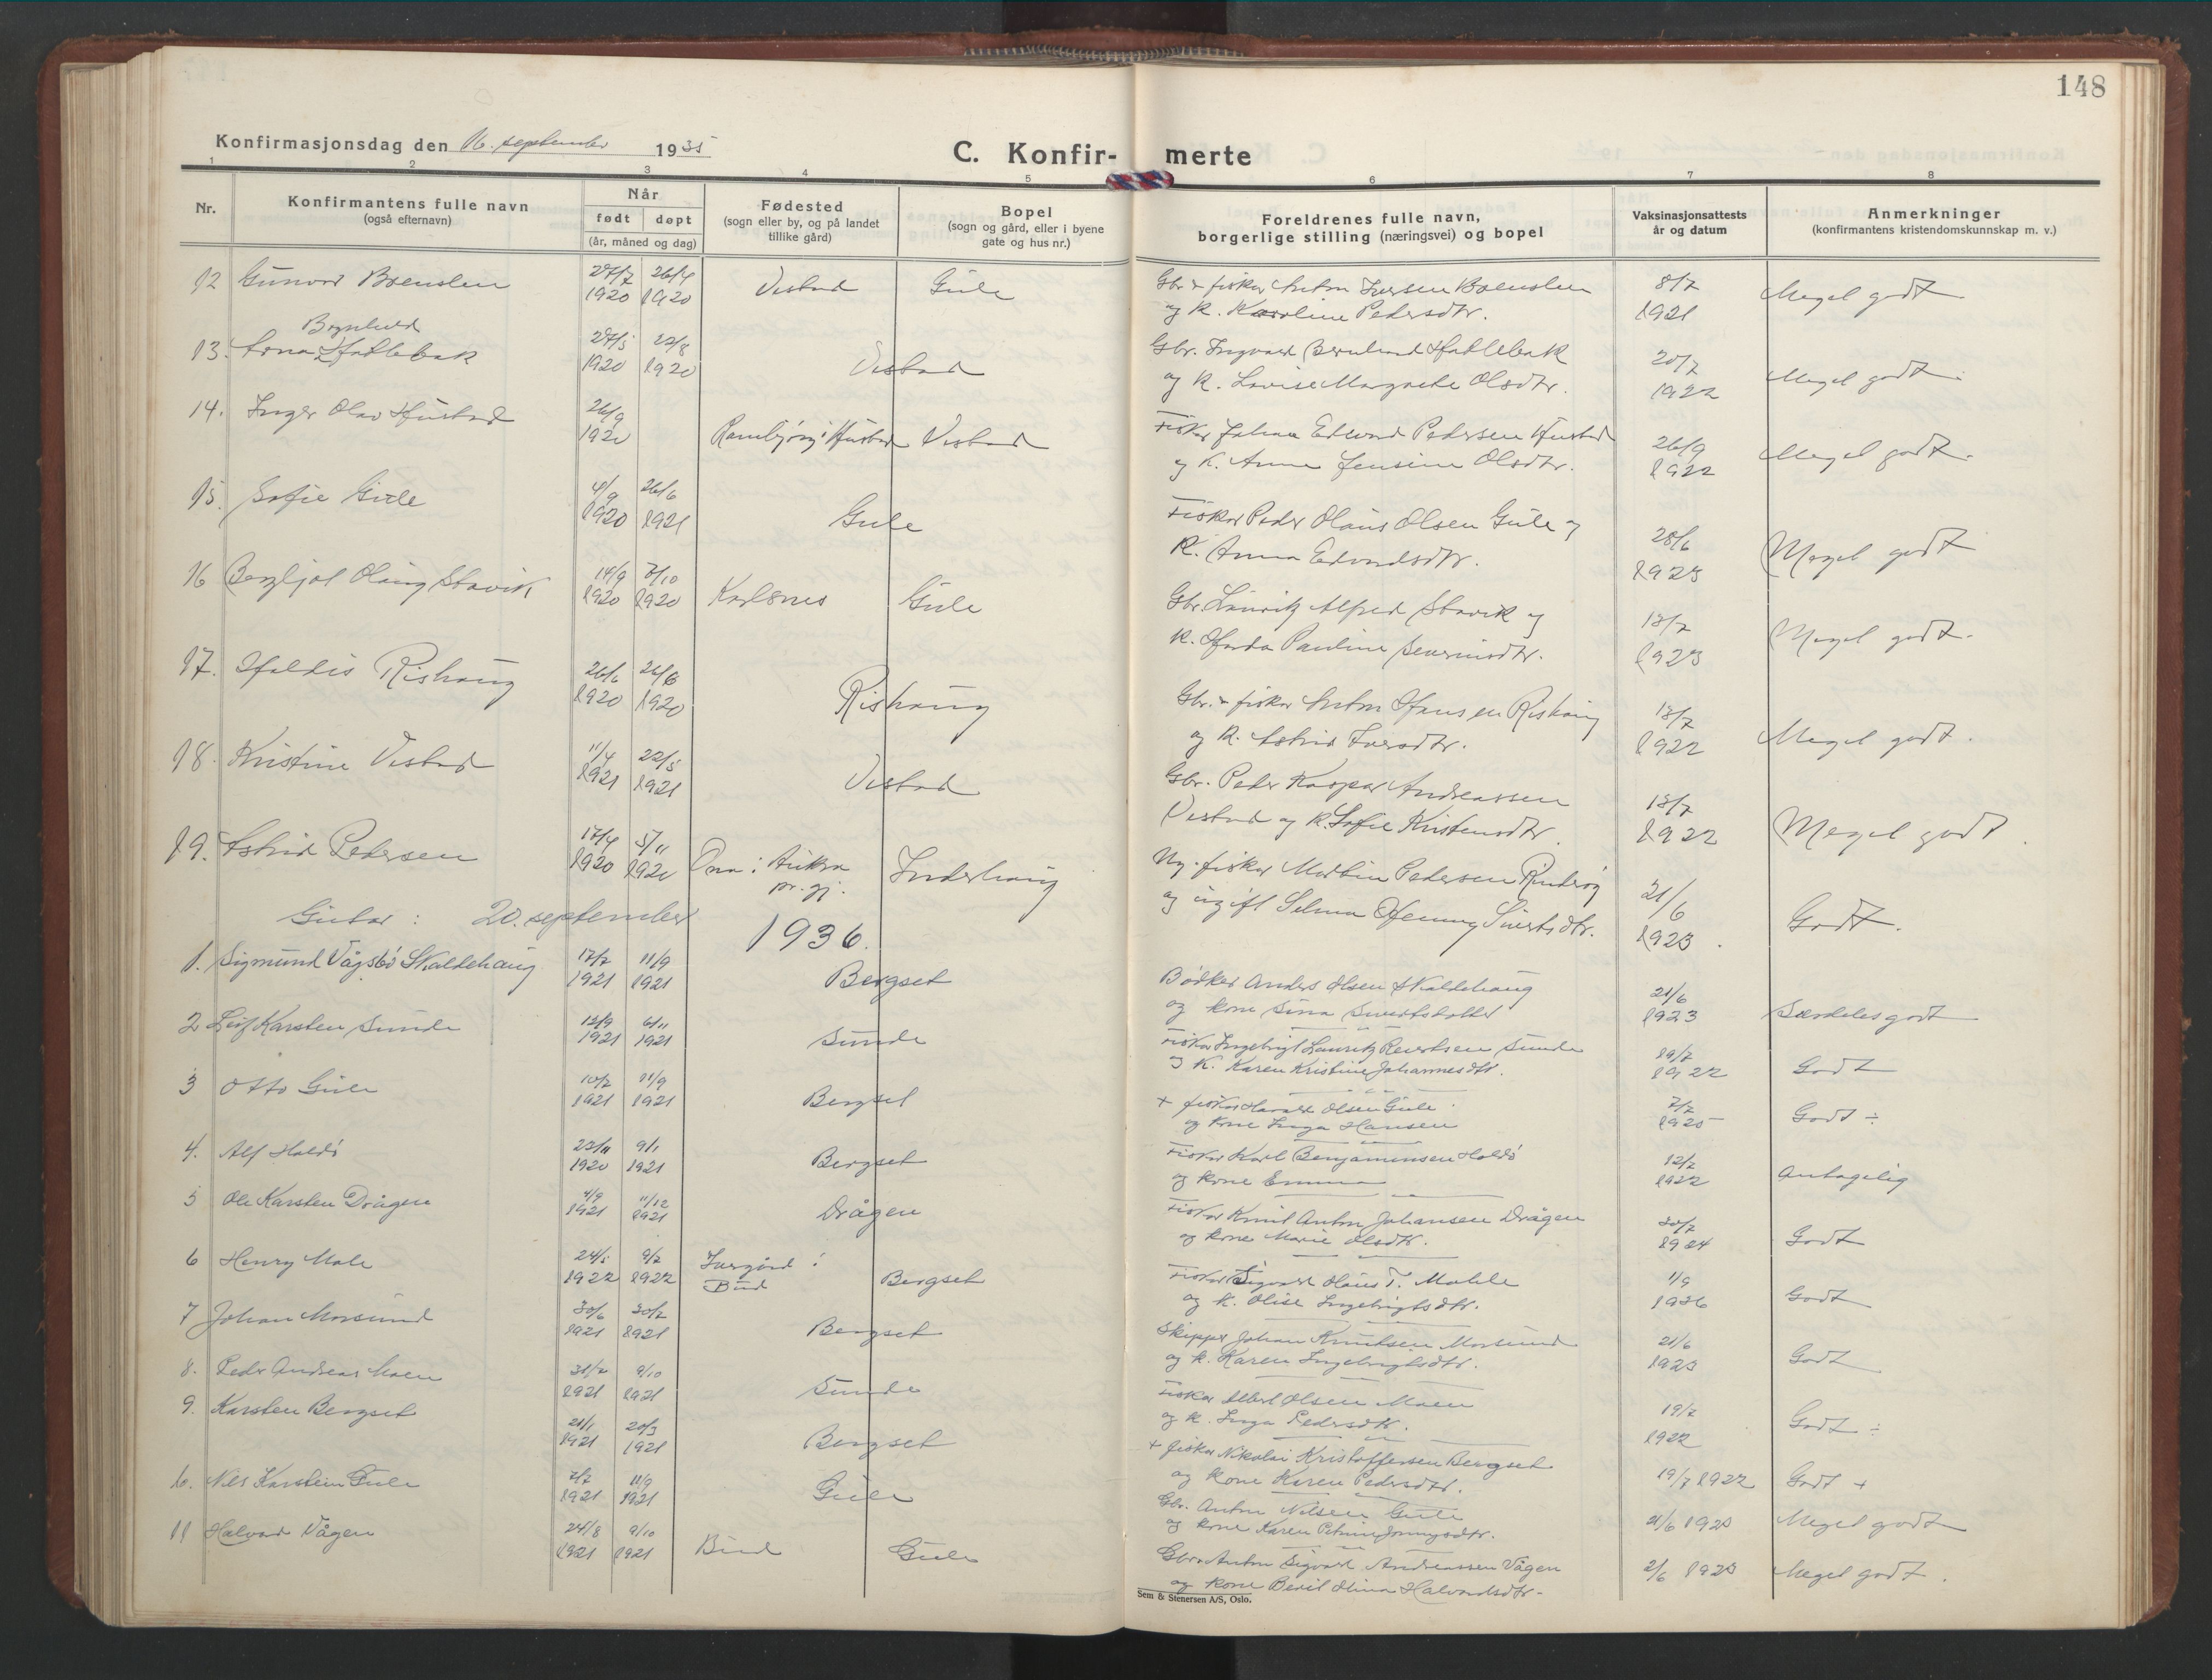 148
Konfirmasjonsdag den 16. september 1935
C. Konfir- merte
1 2 3 4 5 6 7 8
Nr.
Konfirmantens fulle navn
(også efternavn)
Når
født døpt
(år, måned og dag)
Fødested
(sogn eller by, og på landet
tillike gård)
Bopel
(sogn og gård, eller i byene
gate og hus nr.)
Foreldrenes fulle navn,
borgerlige stilling (næringsvei) og bopel
Vaksinasjonsattests
år og datum
Anmerkninger
(konfirmantens kristendomskunnskap m. v.)
12 Gunvor 1920 1920 Vestad Gule Gbr. & fisker Anton Iversen 8/7 Meget godt
og K. Karoline Pedersdtr. 1921
Borghild
13. Hatlebak 27/5 22/8 1920 1920 Vestad Gbr. Ingvald Bernhard Hatlebak 20/7 Meget godt.
og K. Lovise Margrete Olsdtr. 1922
14. Inger Olav Hustad 26/9 1920 Hustad Vestad Fisker Johan Edvard Pedersen Hustad 26/9 Meget godt.
og K. Anna Jensine Olsdtr. 1922
15. Sofie Gule 4/9 26/6 1920 1921 Gule Fisker Peder Olaus Olsen Gule og 28/6 Meget godt
K. Anna Edvardsdtr. 1923
16 Bergljot Olaug Stavik 14/9 3/10 1920 1920 Karlsnes Gule Gbr. Lauritz Alfred Stavik og 13/7 Meget godt.
K. Pauline Severinsdtr. 1923
17. Haldis Rishaug 26/6 1920 1920 Rishaug Gbr. & fisker Anton Hansen Rishaug 13/7 Meget godt.
og K. Astrid Iversdtr. 1922
18. Kristine Vestad 11/4 22/5 1921 1921 Vestad Gbr. Peder Kasper Andreassen 13/7 Meget godt
Vestad og K. Sofie Kristensdtr. 1922
19. Astrid Pedersen 17/4 5/11 1920 1920 Ona i Aukra pr.gj. Inderhaug Ug. fisker Martin Pedersen 21/6 Godt.
og ugift Selma Sivertsdtr. 1923
Gutar: 20. september 1936.
1. Sigmund Vågsbø Skaldehaug 17/7 11/9 1921 1921 Bergset Bødker Anders Olsen Skaldehaug 21/6 Særdeles godt
og kone Sina Sivertsdotter 1923
2 Leif Karsten Sunde 12/9 6/11 1921 1921 Sunde Fisker Ingebrigt Lauritz Sunde 19/7 Godt
og K. Karen Kristine Johannesdtr. 1922
3 Otto Gule 10/7 11/9 1921 1921 Bergset + fisker Harald Olsen Gule 7/7 Godt ÷
og kone Inga Hansen 1925
4. Alf Holdø 23/11 9/1 1920 1921 Bergset Fisker Karl Benjaminsen Holdø 12/7 Antagelig
og kone Emma 1922
5 Ole Karsten Drågen 4/9 11/12 1921 1921 Drågen Fisker Knut Anton Johansen Drågen 30/7 Godt
og kone Marie Olsdtr. 1924
6 Henry Male 24/5 9/7 1922 1922 Bud Bergset Fisker Sigvald Olaus T. Mahle 1/9 Godt
og K. Olise Ingebrigtsdtr. 1936
7 Johan Morsund 30/6 30/7 1921 1921 Bergset Skipper Johan Knutsen Morsund 21/6 Godt
og K. Karen Ingebrigtsdtr. 1923
8. Peder Andreas Moen 31/7 9/10 1921 1921 Sunde Fisker Albert Olsen Moen 19/7 Godt ÷
og K. Inga Pedersdtr. 1922
9. Karsten Bergset 21/1 20/3 1921 1921 Bergset + fisker Nikolai Kristoffersen Bergset 19/7 1922 Godt +
og kone Karen Pedersdtr.
10. Nils Karstein Gule 7/7 11/9 1921 1921 Gule Gbr. Anton Nilsen Gule 21/6 1923 Meget godt
og kone Karen
11 Halvard Vågen 24/8 9/10 1921 1921 Bud Gule Gbr. Anton Sigvard Andreassen Vågen 2/6 1923 Meget godt.
og kone Berit Olina Halvardsdtr.
Sem & Stenersen A/S, Oslo.